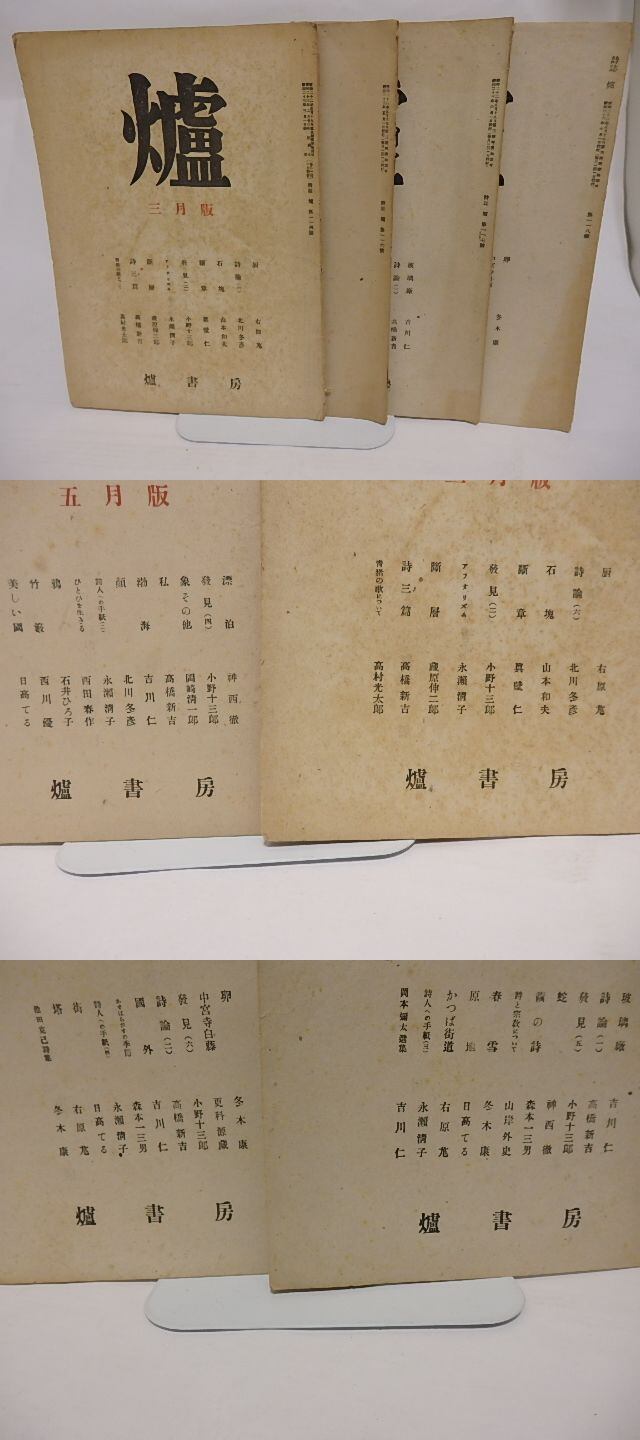 爐
三月版
厨 右原尨
詩論(六) 北川冬彦
石塊 山本和夫
斷章 眞壁仁
發見(三) 小野十三郎
アフオリズム 永瀬淸子
斷層 蔵原伸二郎
詩三篇 高橋新吉
高村光太郎
爐書房
玻璃廠 吉川仁
詩論(一) 高橋新吉
卵
冬木康
詩誌 爐
第一一八號
五月版
漂泊 神西徹
發見(四) 小野十三郎
象その他 岡崎淸一郎
私 高橋新吉
渤海 吉川仁
顏 北川冬彦
詩人への手紙(二) 永瀬淸子
ひとひを生きる 西田春作
鵜 石井ひろ子
竹叢 西川優
美しい國 日高てる
爐書房
厨 右原尨
詩論(六) 北川冬彦
石塊 山本和夫
斷章 眞壁仁
發見(三) 小野十三郎
アフオリズム 永瀬淸子
斷層 蔵原伸二郎
詩三篇 高橋新吉
靑猪の歌について 高村光太郎
爐書房
卵 冬木康
中宮寺白藤 更科源蔵
發見(六) 小野十三郎
詩論(二) 高橋新吉
國外 吉川仁
森本一三男
詩人への手紙(四) 永瀬淸子
街 日高てる
塔 右原尨
池田克己詩集 冬木康
爐書房
玻璃廠 吉川仁
詩論(一) 高橋新吉
發見(五) 小野十三郎
蛇 神西徹
繭の詩 森本一三男
詩と宗教について 山岸外史
春雪 冬木康
原地 日高てる
かつぱ街道 右原尨
詩人への手紙(三) 永瀬淸子
岡本彌太選集 吉川仁
爐書房